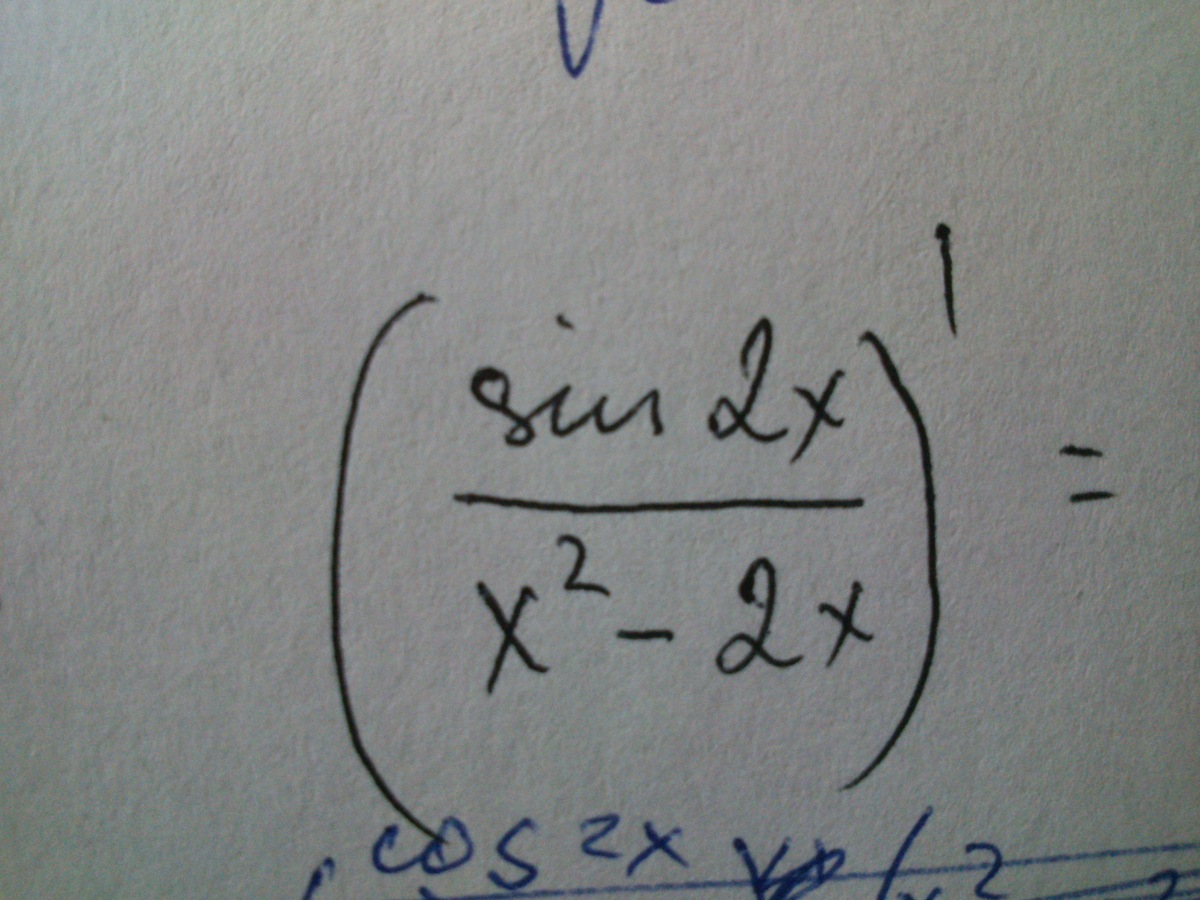 (sin 2x / x² - 2x)' =
cos 2x